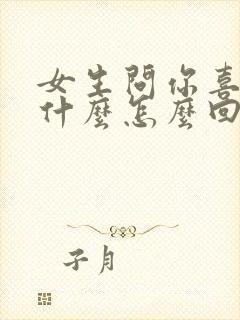 女生問你喜
什麼怎麼回
子月